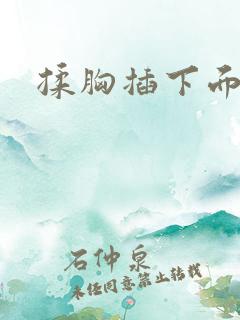 揉胸插下而
石仲泉
未经同意禁止转载